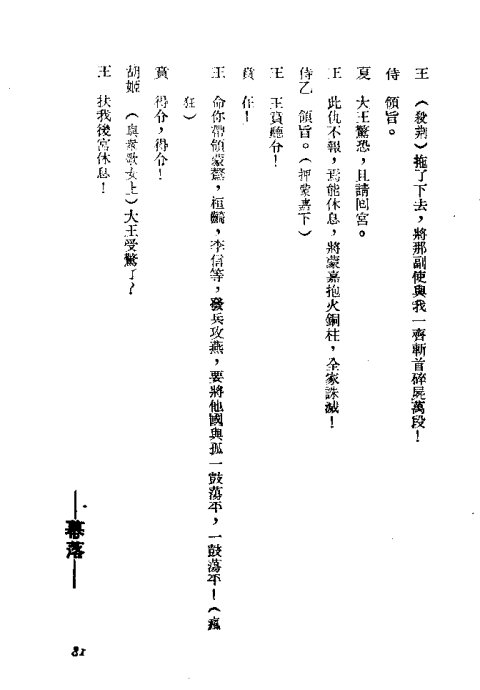 王　（殺荆）拖了下去，將那副使與我一齊斬首碎屍萬段！
侍　領旨。
夏　大王驚恐，且請回宮。
王　此仇不報，焉能休息，將蒙嘉抱火銅柱，全家誅滅！
侍乙　領旨。（押蒙嘉下）
王　王賁聽令！
賁　在！
王　命你帶領蒙驁，桓齮，李信等，發兵攻燕，要將他國與孤一鼓蕩平，一鼓蕩平！（瘋
狂）
賁　得令，得令！
胡姬　（與衆歌女上）大王受驚了？
王　扶我後宮休息！
——幕落——
18